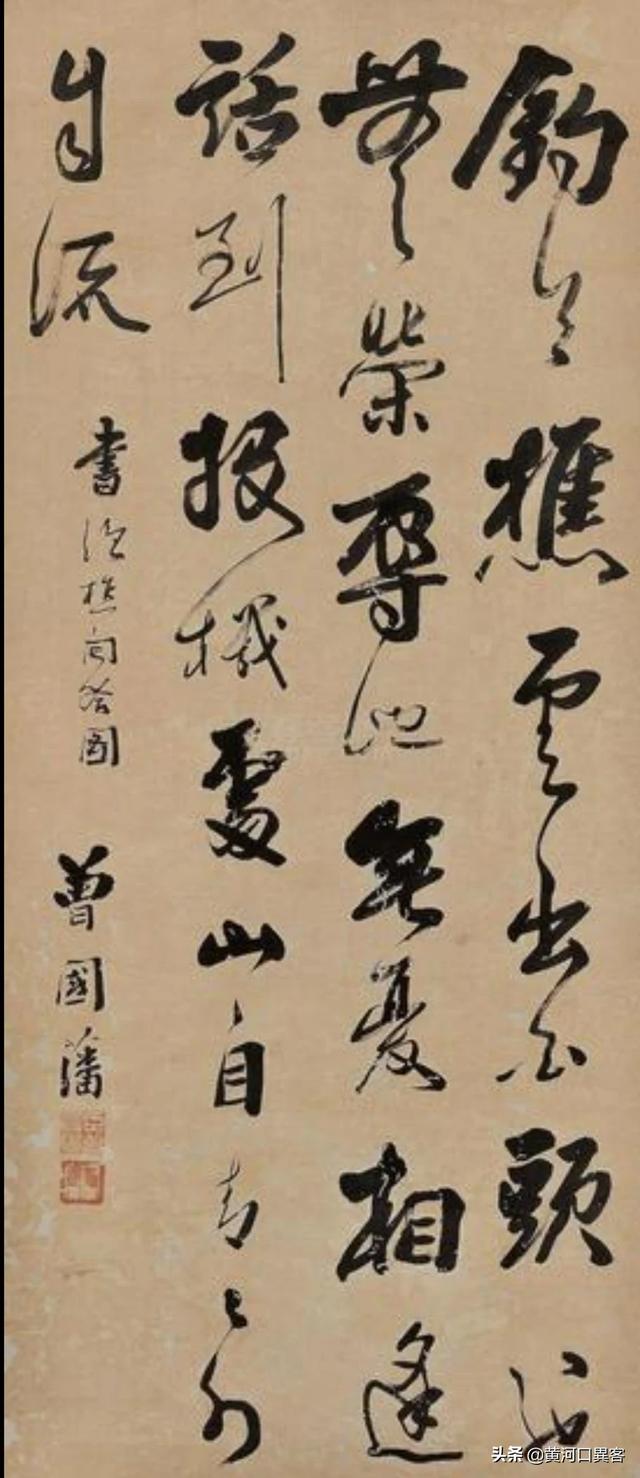 釣樵雲白頭也
無榮辱也無憂相逢
話到投機處山自青々水
自流
書漁樵問答圖 曾國藩
头条 @黄河口異客